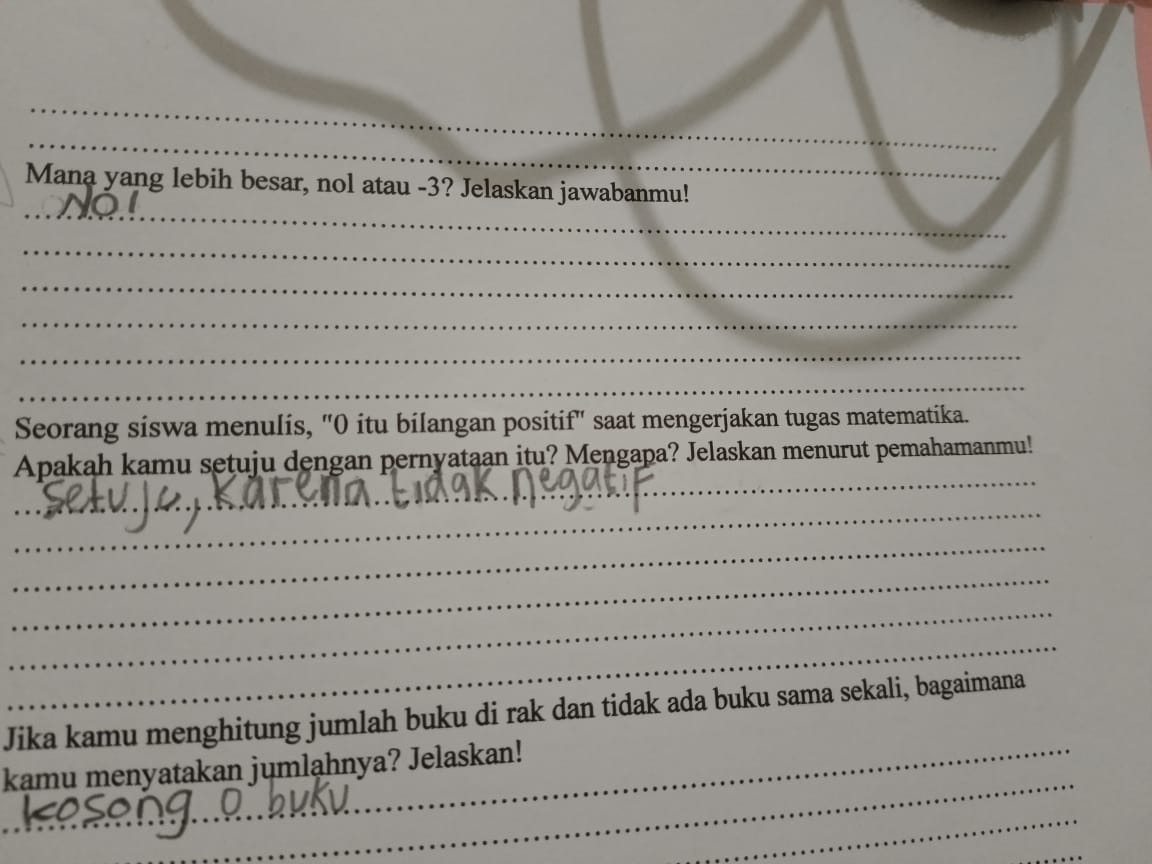 Mana yang lebih besar, nol atau -3? Jelaskan jawabanmu!
NOl
Seorang siswa menulis, "0 itu bilangan positif" saat mengerjakan tugas matematika.
Apakah kamu setuju dengan pernyataan itu? Mengapa? Jelaskan menurut pemahamanmu!
setuju, karena tidak negatif
Jika kamu menghitung jumlah buku di rak dan tidak ada buku sama sekali, bagaimana
kamu menyatakan jumlahnya? Jelaskan!
kosong 0 buku